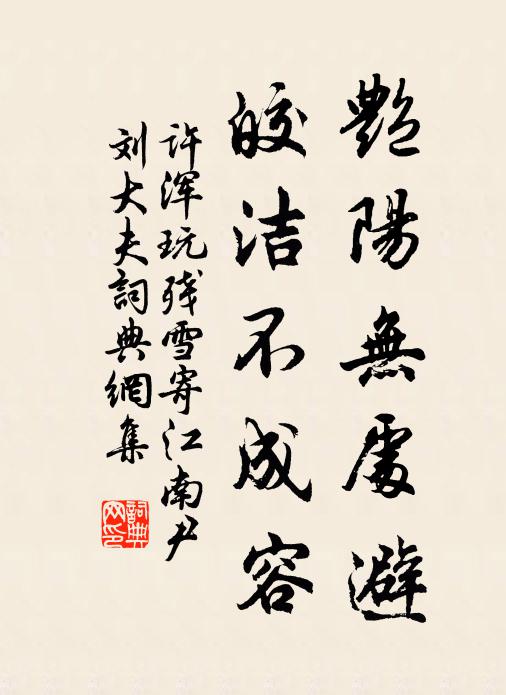 艷陽無處避
皎洁不成容
许浑玩残雪寄江南尹
刘大夫詞典網集
詞典网印